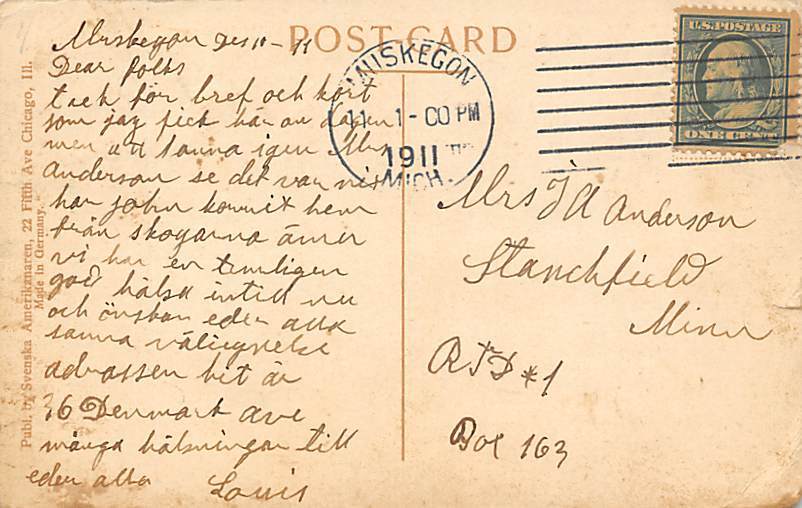 POST CARD
Muskegon Des 10-11
Dear folks
tack för bref och kort
som jag fick här om dagen
men att sanna igen Mrs
Anderson se det var
har john kommit hem
från skogarna ännu
vi har en temligen
god hälsa intill nu
och önskan eder alla
samma välsignelse
adrassen hit är
36 Denmark ave
många hälsningar till
eder alla Louis
Publ. by Svenska Amerikanaren, 22 Fifth Ave Chicago, Ill.
Made in Germany.
MUSKEGON
11 1-00 PM
1911
MICH.
U.S. POSTAGE
ONE CENT
Mrs J A Anderson
Stanchfield
Minn
RFD #1
Box 163